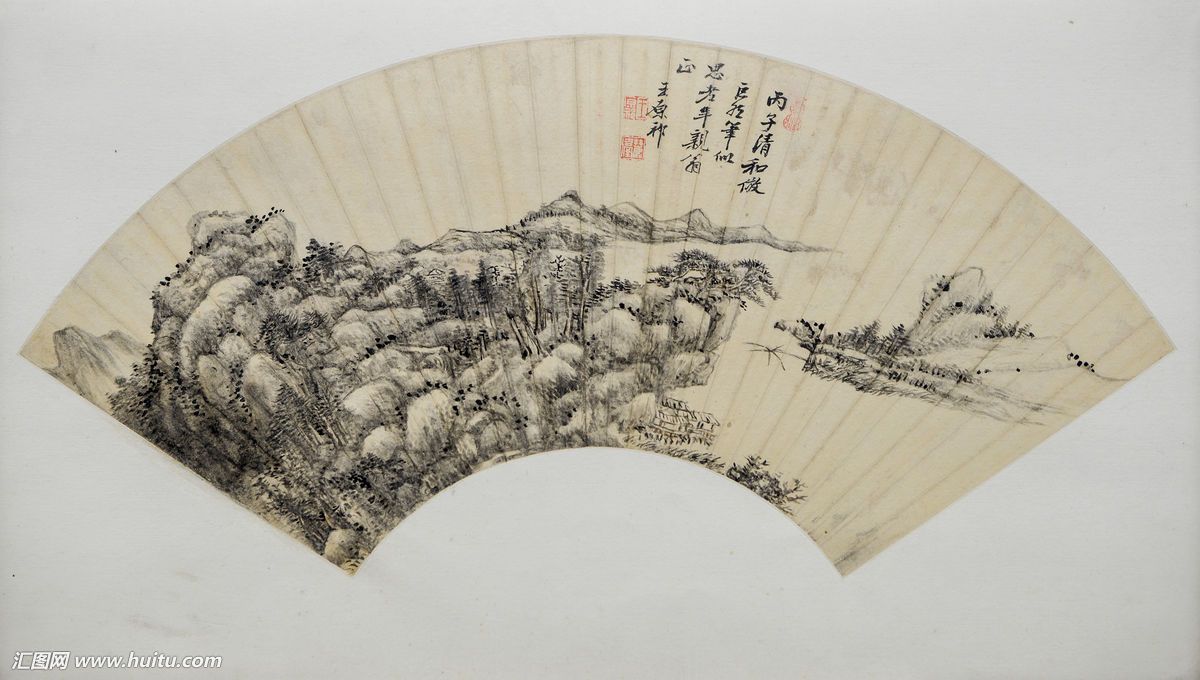 丙子清和倣
巨然筆似
思老年親翁
正
王原祁
汇图网 www.huitu.com